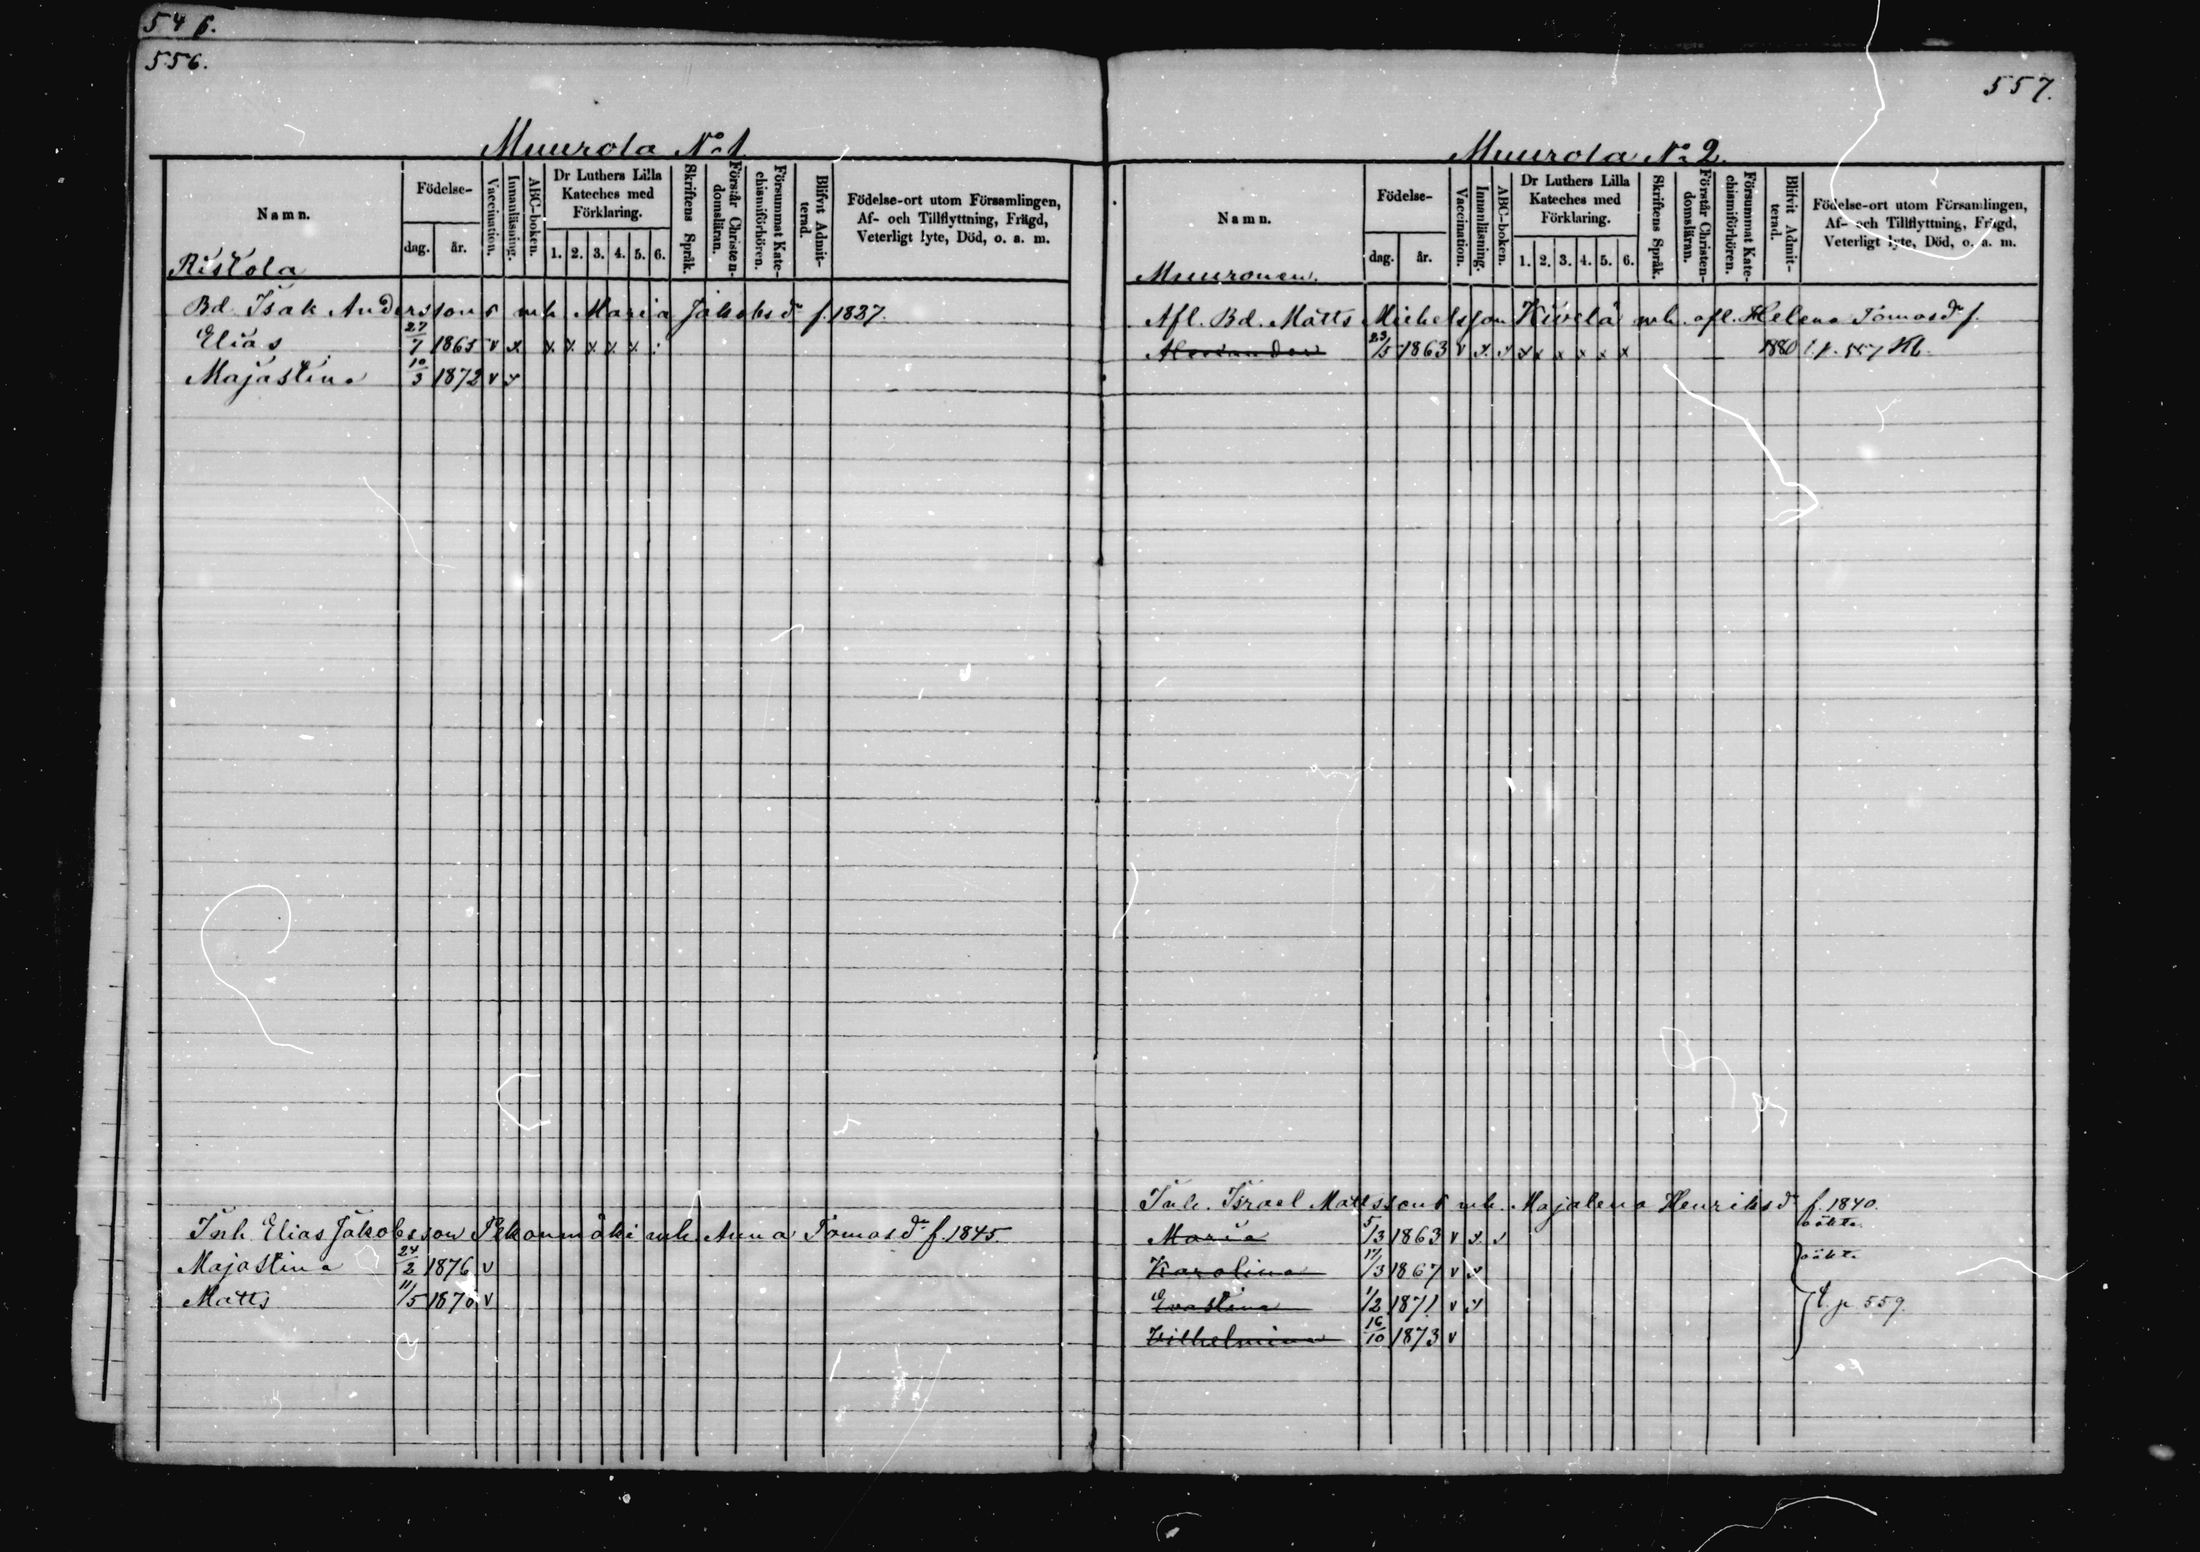 546.
556.
Muurola No 1
Namn.
Födelse-
dag. år.
Vaccination.
Innanläsning.
ABC-boken.
Dr Luthers Lilla Kateches med Förklaring.
1. 2. 3. 4. 5. 6.
Skriftens Språk.
Förstår Christendomsläran.
Försummat Katechismiförhören.
Blifvit Admitterad.
Födelse-ort utom Församlingen,
Af- och Tillflyttning, Frägd,
Veterligt lyte, Död, o. a. m.
Ristola
Bd. Isak Anderssons mh Maria Jakobsdr f. 1837.
Elias 27/7 1865 v x x x x x x
Majastina 10/3 1872 v x
Inh Elias Jakobsson Pekonmäki mh. Anna Tomasdr f. 1845.
Majastina 24/2 1876 v
Matts 11/5 1870 v
557.
Muurola No 2.
Namn.
Födelse-
dag. år.
Vaccination.
Innanläsning.
ABC-boken.
Dr Luthers Lilla Kateches med Förklaring.
1. 2. 3. 4. 5. 6.
Skriftens Språk.
Förstår Christendomsläran.
Försummat Katechismiförhören.
Blifvit Admitterad.
Födelse-ort utom Församlingen,
Af- och Tillflyttning, Frägd,
Veterligt lyte, Död, o. a. m.
Muuronen.
Afl. Bd. Matts Michelsson Kivelä mh. afl. Helena Tomasdr f.
Alexander 23/5 1863 v x x x x x x x x 1880 t. p. 557 Kb.
Inh. Israel Mattssons mh. Majalena Henriksdr f. 1840.
Maria 5/3 1863 v x x oäkta
Karolina 17/3 1867 v x oäkt.
Evastina 1/2 1871 v x t. p 559.
Vilhelmina 16/10 1873 v